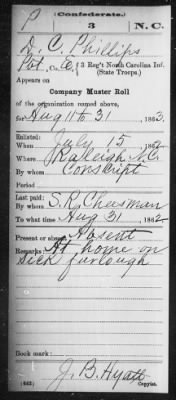 (Confederate.)
P 3 N.C.
D. C. Phillips
Pvt, Co. E, 3 Reg't North Carolina Inf.
(State Troops.)
Appears on
Company Muster Roll
of the organization named above,
for Aug 1 to 31, 1863.
Enlisted:
When July 15, 1862
Where Raleigh N.C.
By whom Conscript
Period
Last paid:
By whom S. R. Chesman
To what time Aug 31, 1862
Present or absent Absent
Remarks: At home on
sick furlough
Book mark:
J. B. Hyatt
(642) Copyist.